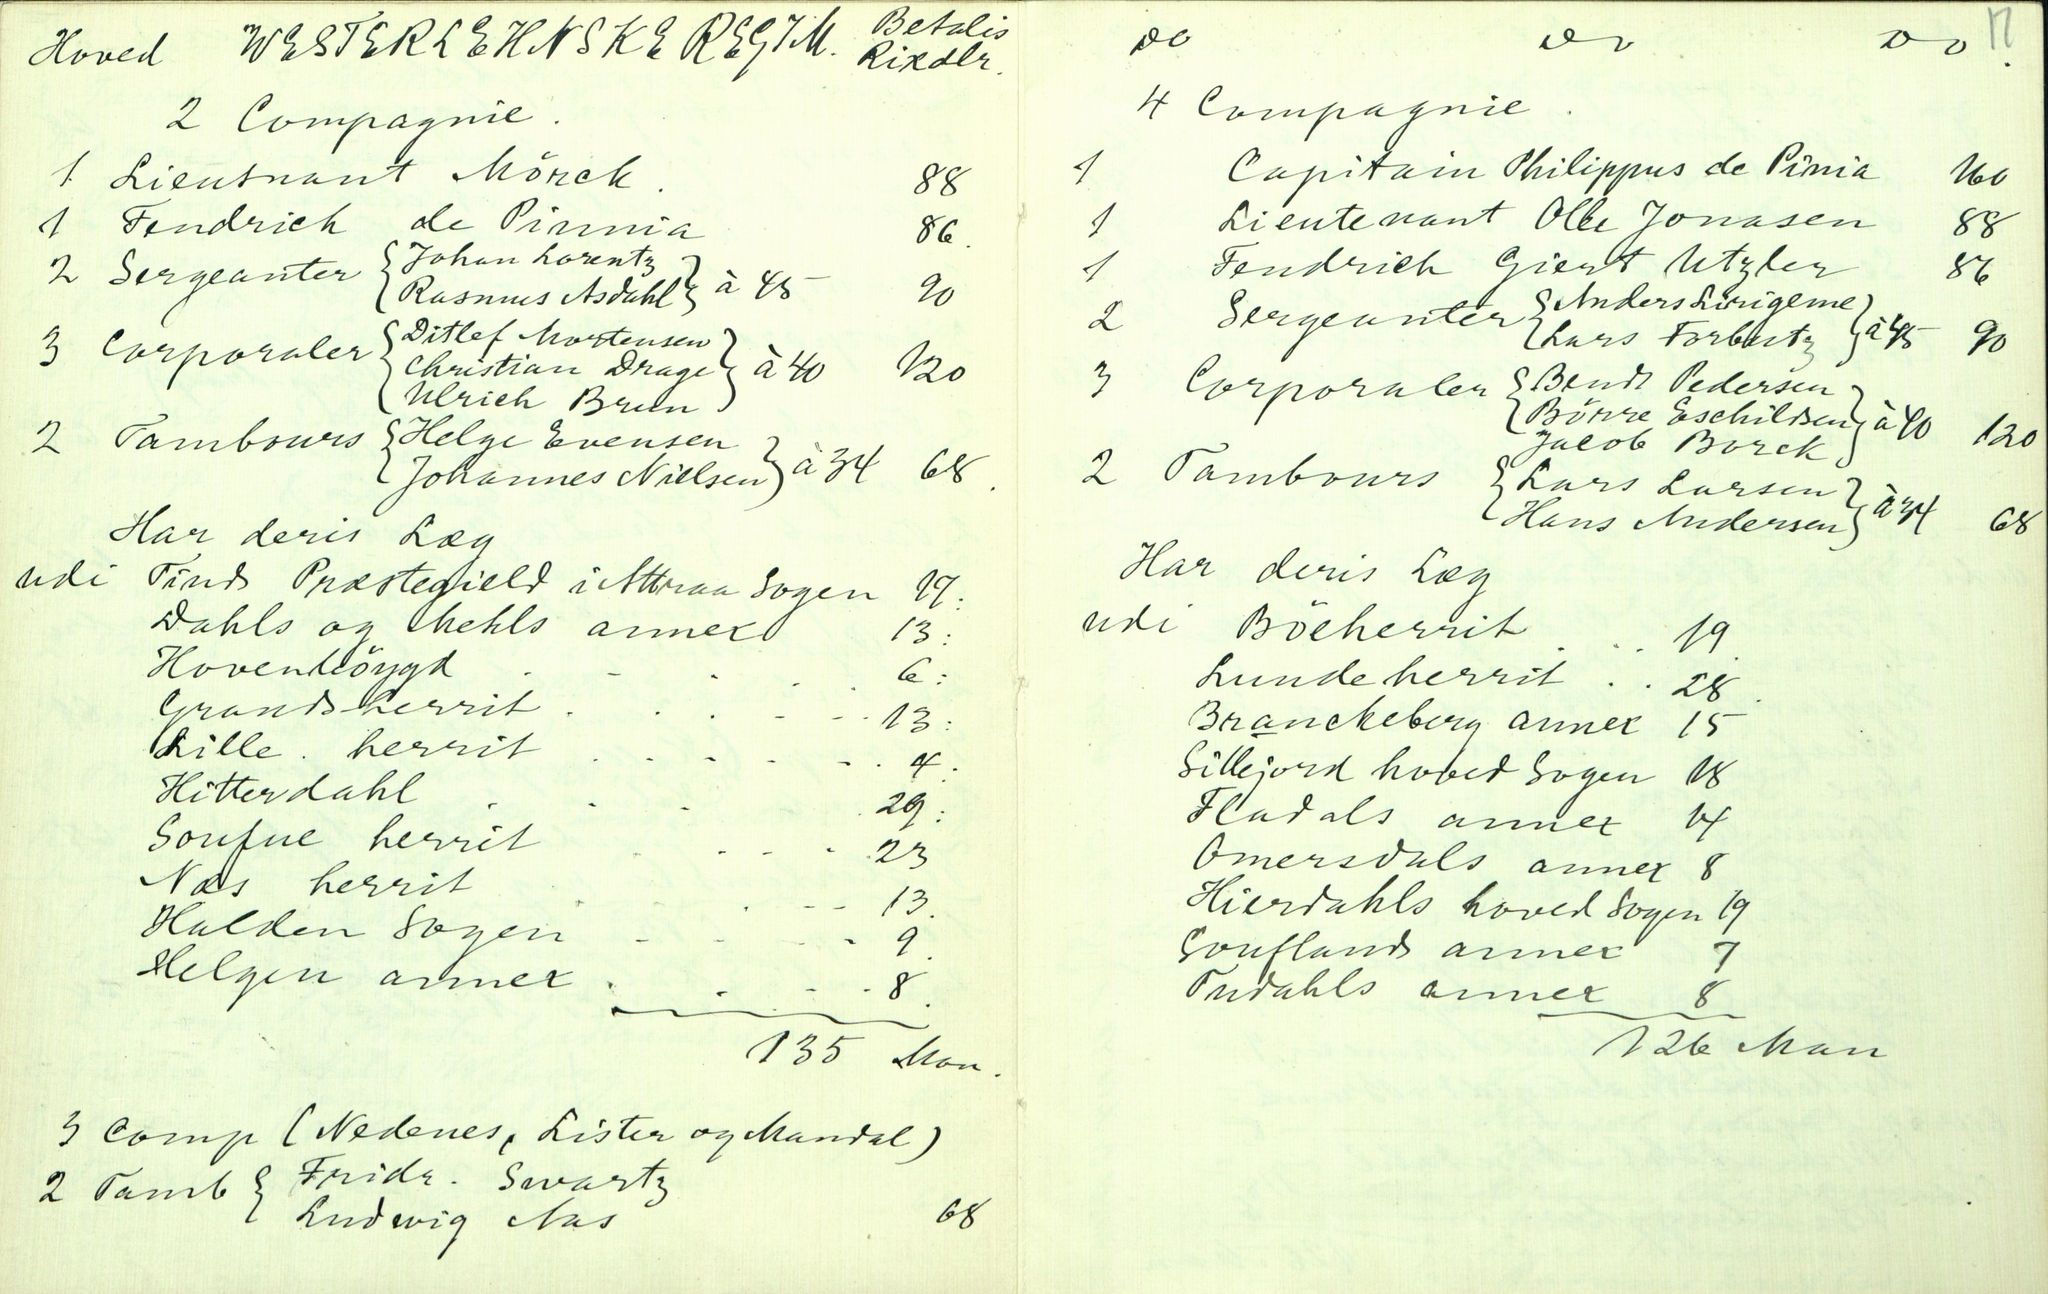 Hoved WESTERLEHNSKE REGIM. Betalis
Rixdlr.
2 Compagnie.
1 Lieutnant Mörck. 88
1 Fendrich de Pinnia 86.
2 Sergeanter { Johan Lorentz
Rasmus Asdahl } à 45 90
3 Corporaler { Ditlef Mortensen
Christian Drage
Ulrich Brun } à 40 120
2 Tambours { Helge Evensen
Johannes Nielsen } à 34 68.
Har deris Læg
udi Tinds Præstegield i Attraa Sogen 17:
Dahls og Mehls annex 13:
6:
Grandsherrit 13:
Lille herrit 4.
Hitterdahl 29:
Soufue herrit 23
Næs herrit 13.
Halden Sogen 9.
Helgen annex 8.
135 Man.
3 Comp (Nedenes, Lister og Mandal)
2 Tamb { Fridr. Swartz
Ludwig Nas 68
Do Do Do 17.
4 Compagnie.
1 Capitain Philippus de Pinia 160
1 Lieutenant Olle Jonasen 88
1 Fendrich Giert Utzler 86
2 Sergeanter { Anders
Lars Forbutz } à 45 90
3 Corporaler { Bendt Pedersen
Börre Eschildsen
Jacob Borck } à 40 120
2 Tambours { Lars Larsen
Hans Andersen } à 34 68
Har deris Læg
udi Böeherrit 19.
Lundeherrit 28.
Branckeberg annex 15
Sillejord hoved Sogen 18
Fladals annex 14
Omersdals annex 8
Hierdahls hoved Sogen 19
Souflands annex 7
Tudahls annex 8
126 Man